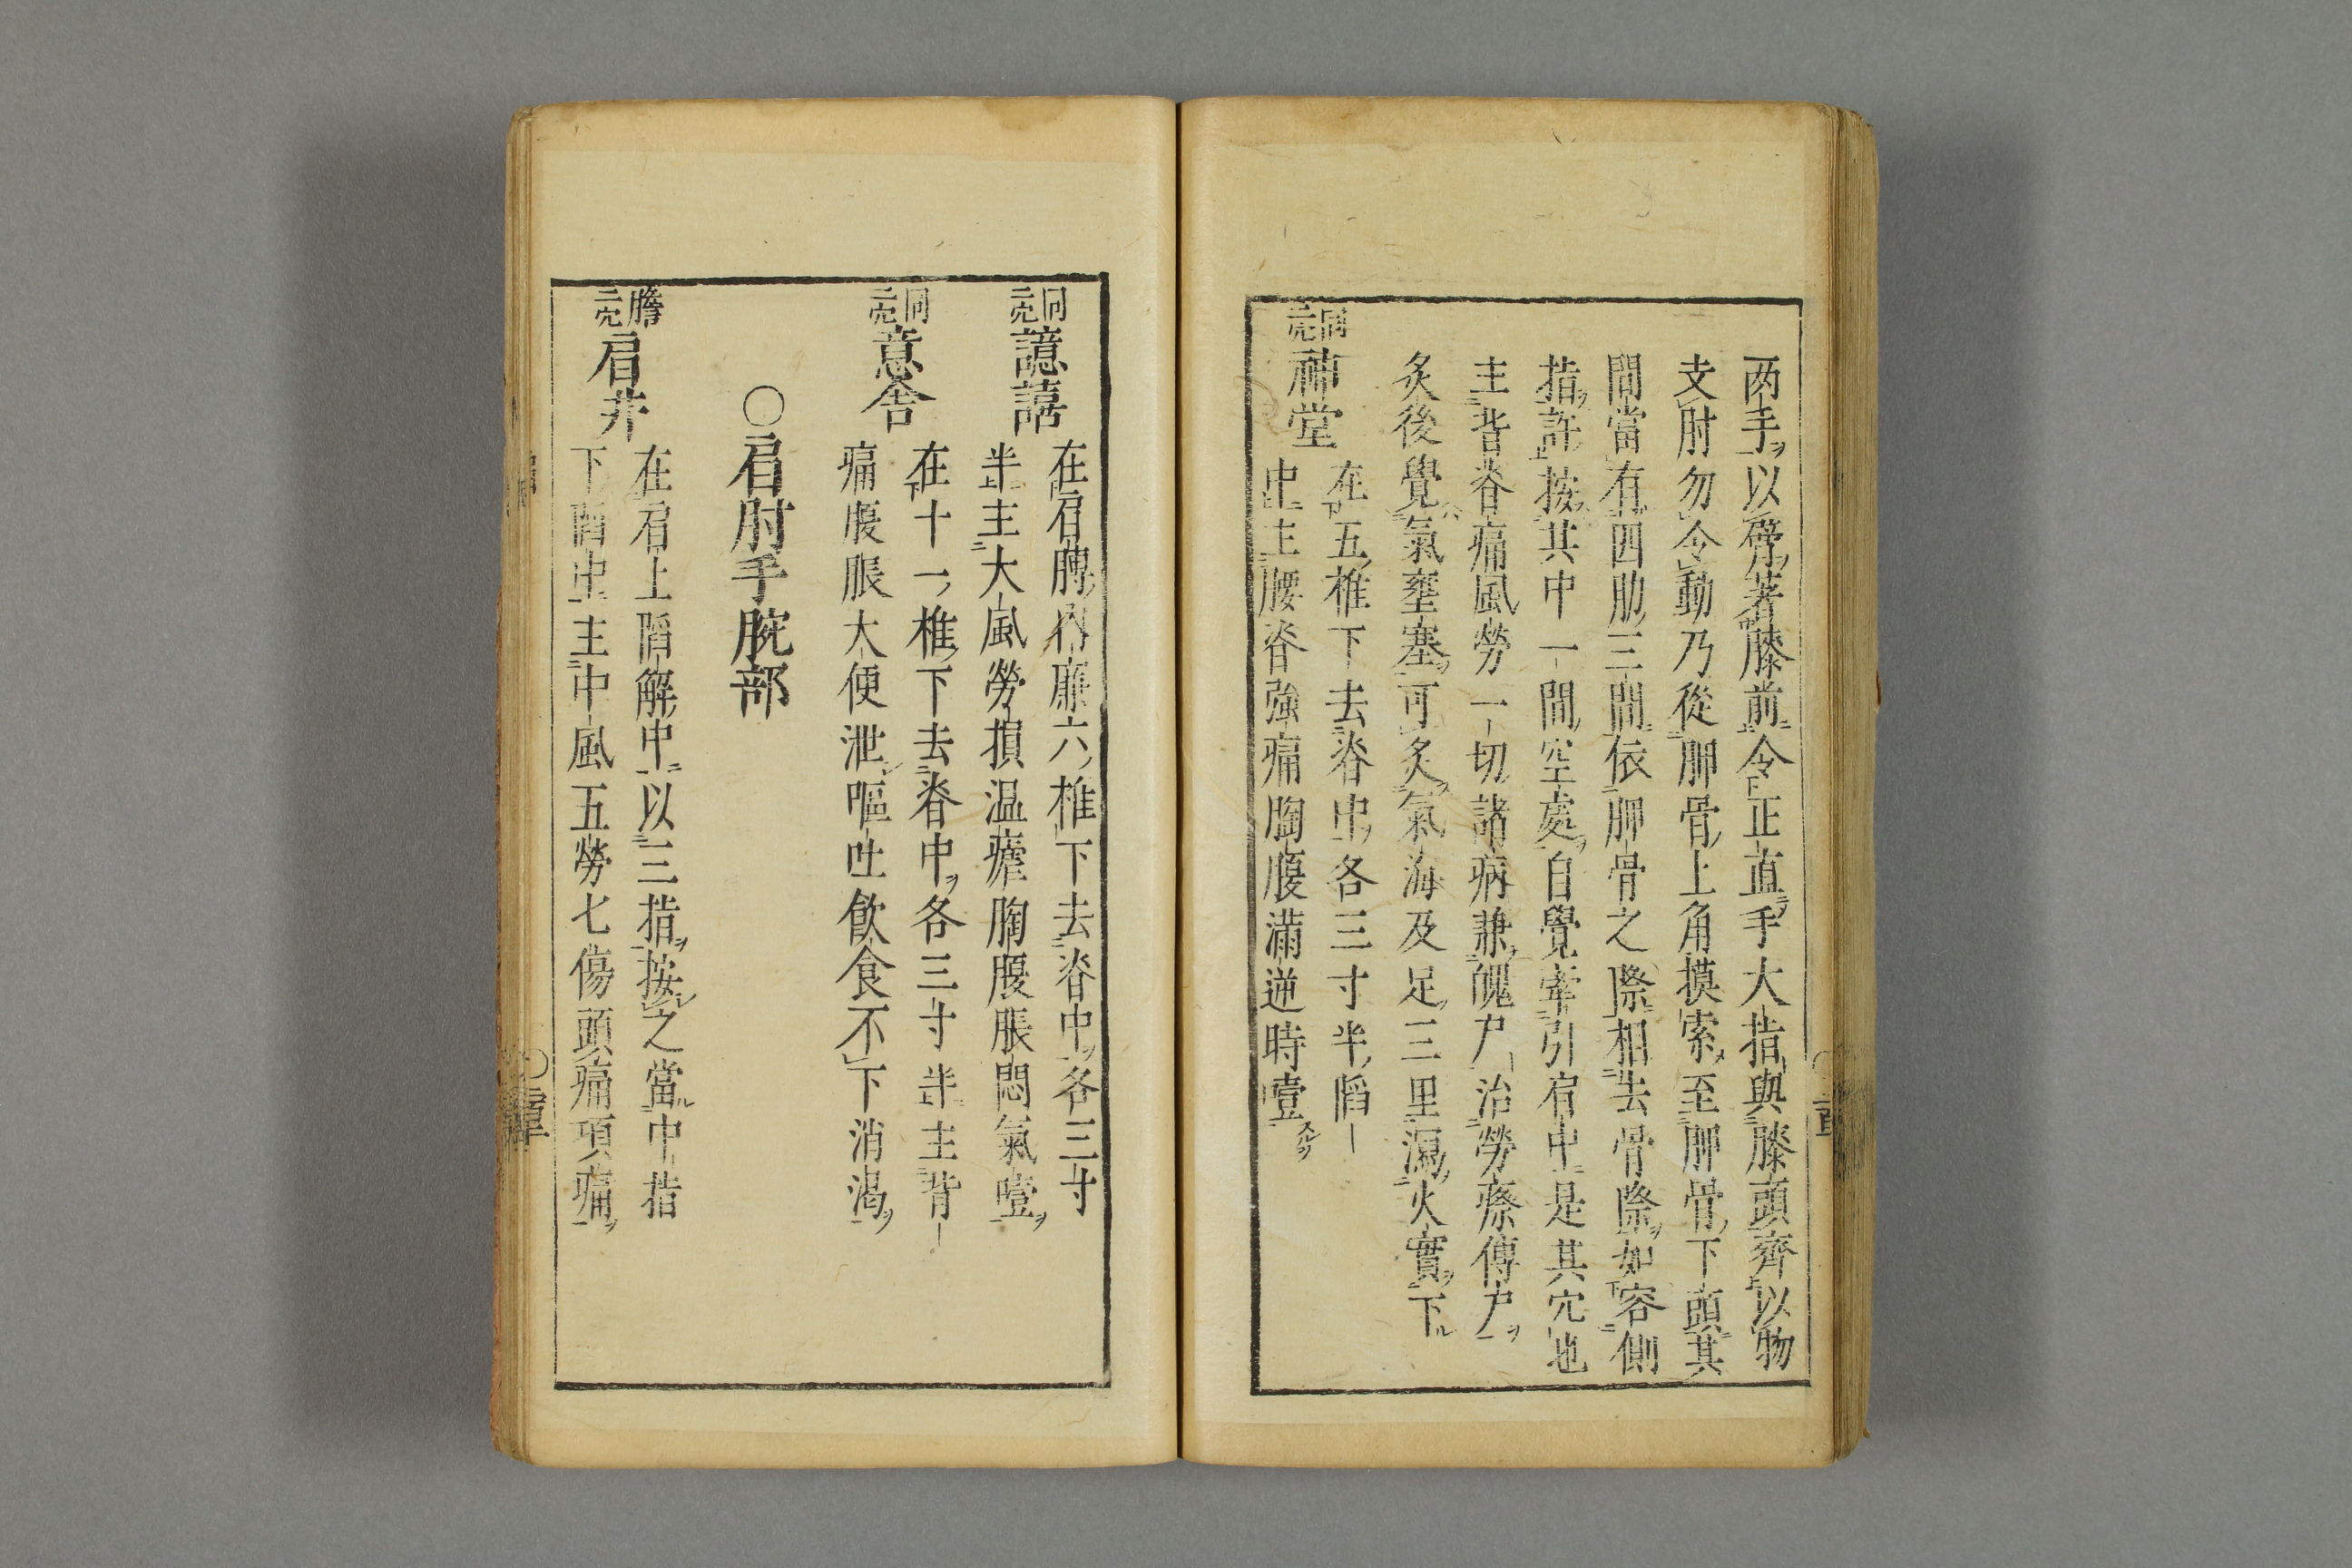 両手以臂著膝前令正直手大指與膝頭齊以物
支肘勿令動乃從胛骨上角摸索至胛骨下頭其
間當有四肋三間依胛骨之際相去骨際如容側
指許按其中一間空處自覺牽引肩中是其穴也
主背脊痛風勞一切諸病兼魄尸治勞瘵傳尸
灸後覺氣壅塞可灸氣海及足三里瀉火實下
同二穴 神堂 在五椎下去脊中各三寸半陷
中主腰脊強痛胸腹滿逆時噎
同二穴 譩譆 在肩膊內廉六椎下去脊中各三寸
半主大風勞損温瘧胸腹脹悶氣噎
同二穴 意舍 在十一椎下去脊中各三寸半主背
痛腹脹大便泄嘔吐飲食不下消渴
〇肩肘手腕部
膽二穴 肩井 在肩上陷解中以三指按之當中指
下陷中主中風五勞七傷頭痛項痛